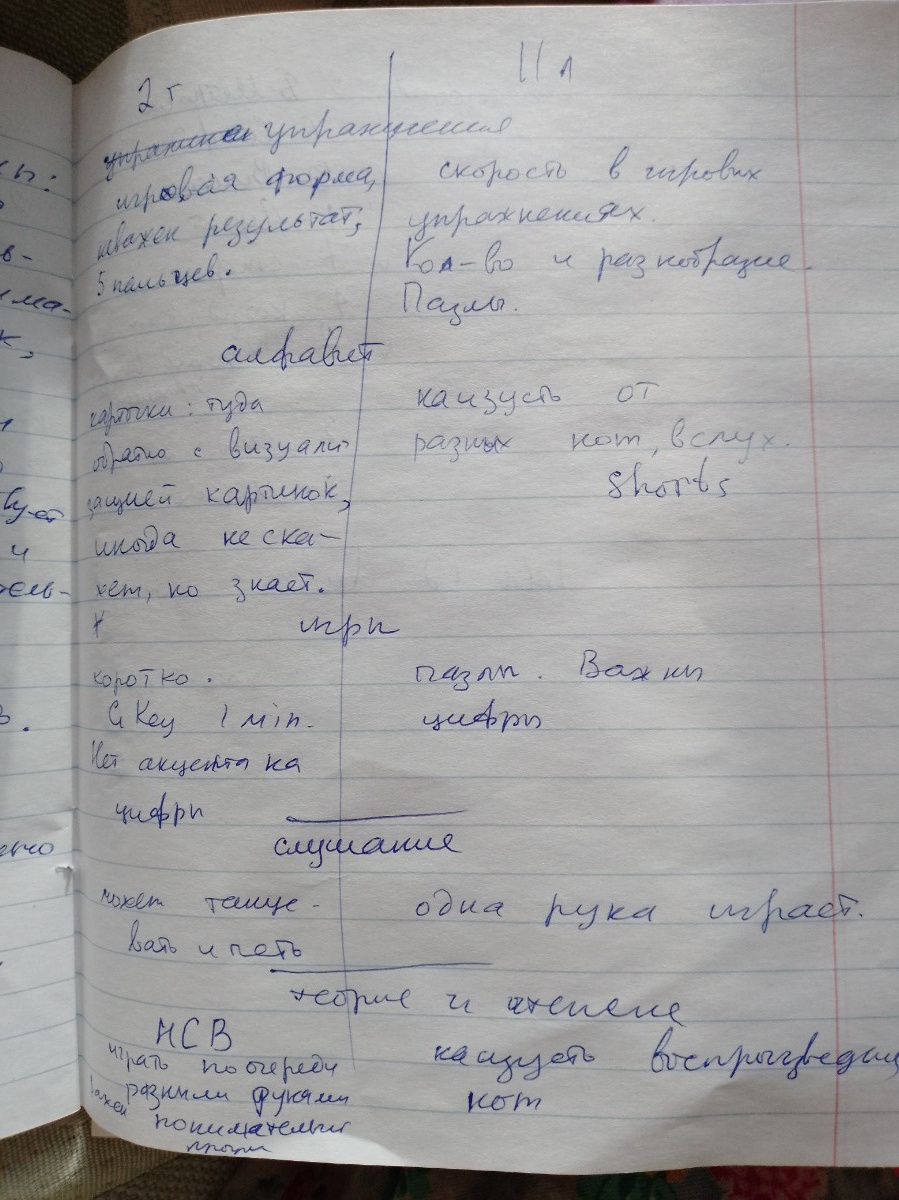 2 г
11 л
упражнения
игровая форма,
неважен результат,
5 пальцев.
скорость в игровых
упражнениях.
Кол-во и разнобразие.
Пазлы.
алфавит
карточки: туда
обратно с визуали-
зацией картинок,
иногда не ска-
жет, но знает.
наизусть от
разных нот, вслух.
Shorts
игры
коротко.
G Key 1 min.
Нет акцента на
цифры
пазлы. Важны
цифры
слушание
может танце-
вать и петь
одна рука играет.
теория и чтение
НСВ
играть по очереди
разными руками
важен
понимательный
наизусть воспроизведение
нот